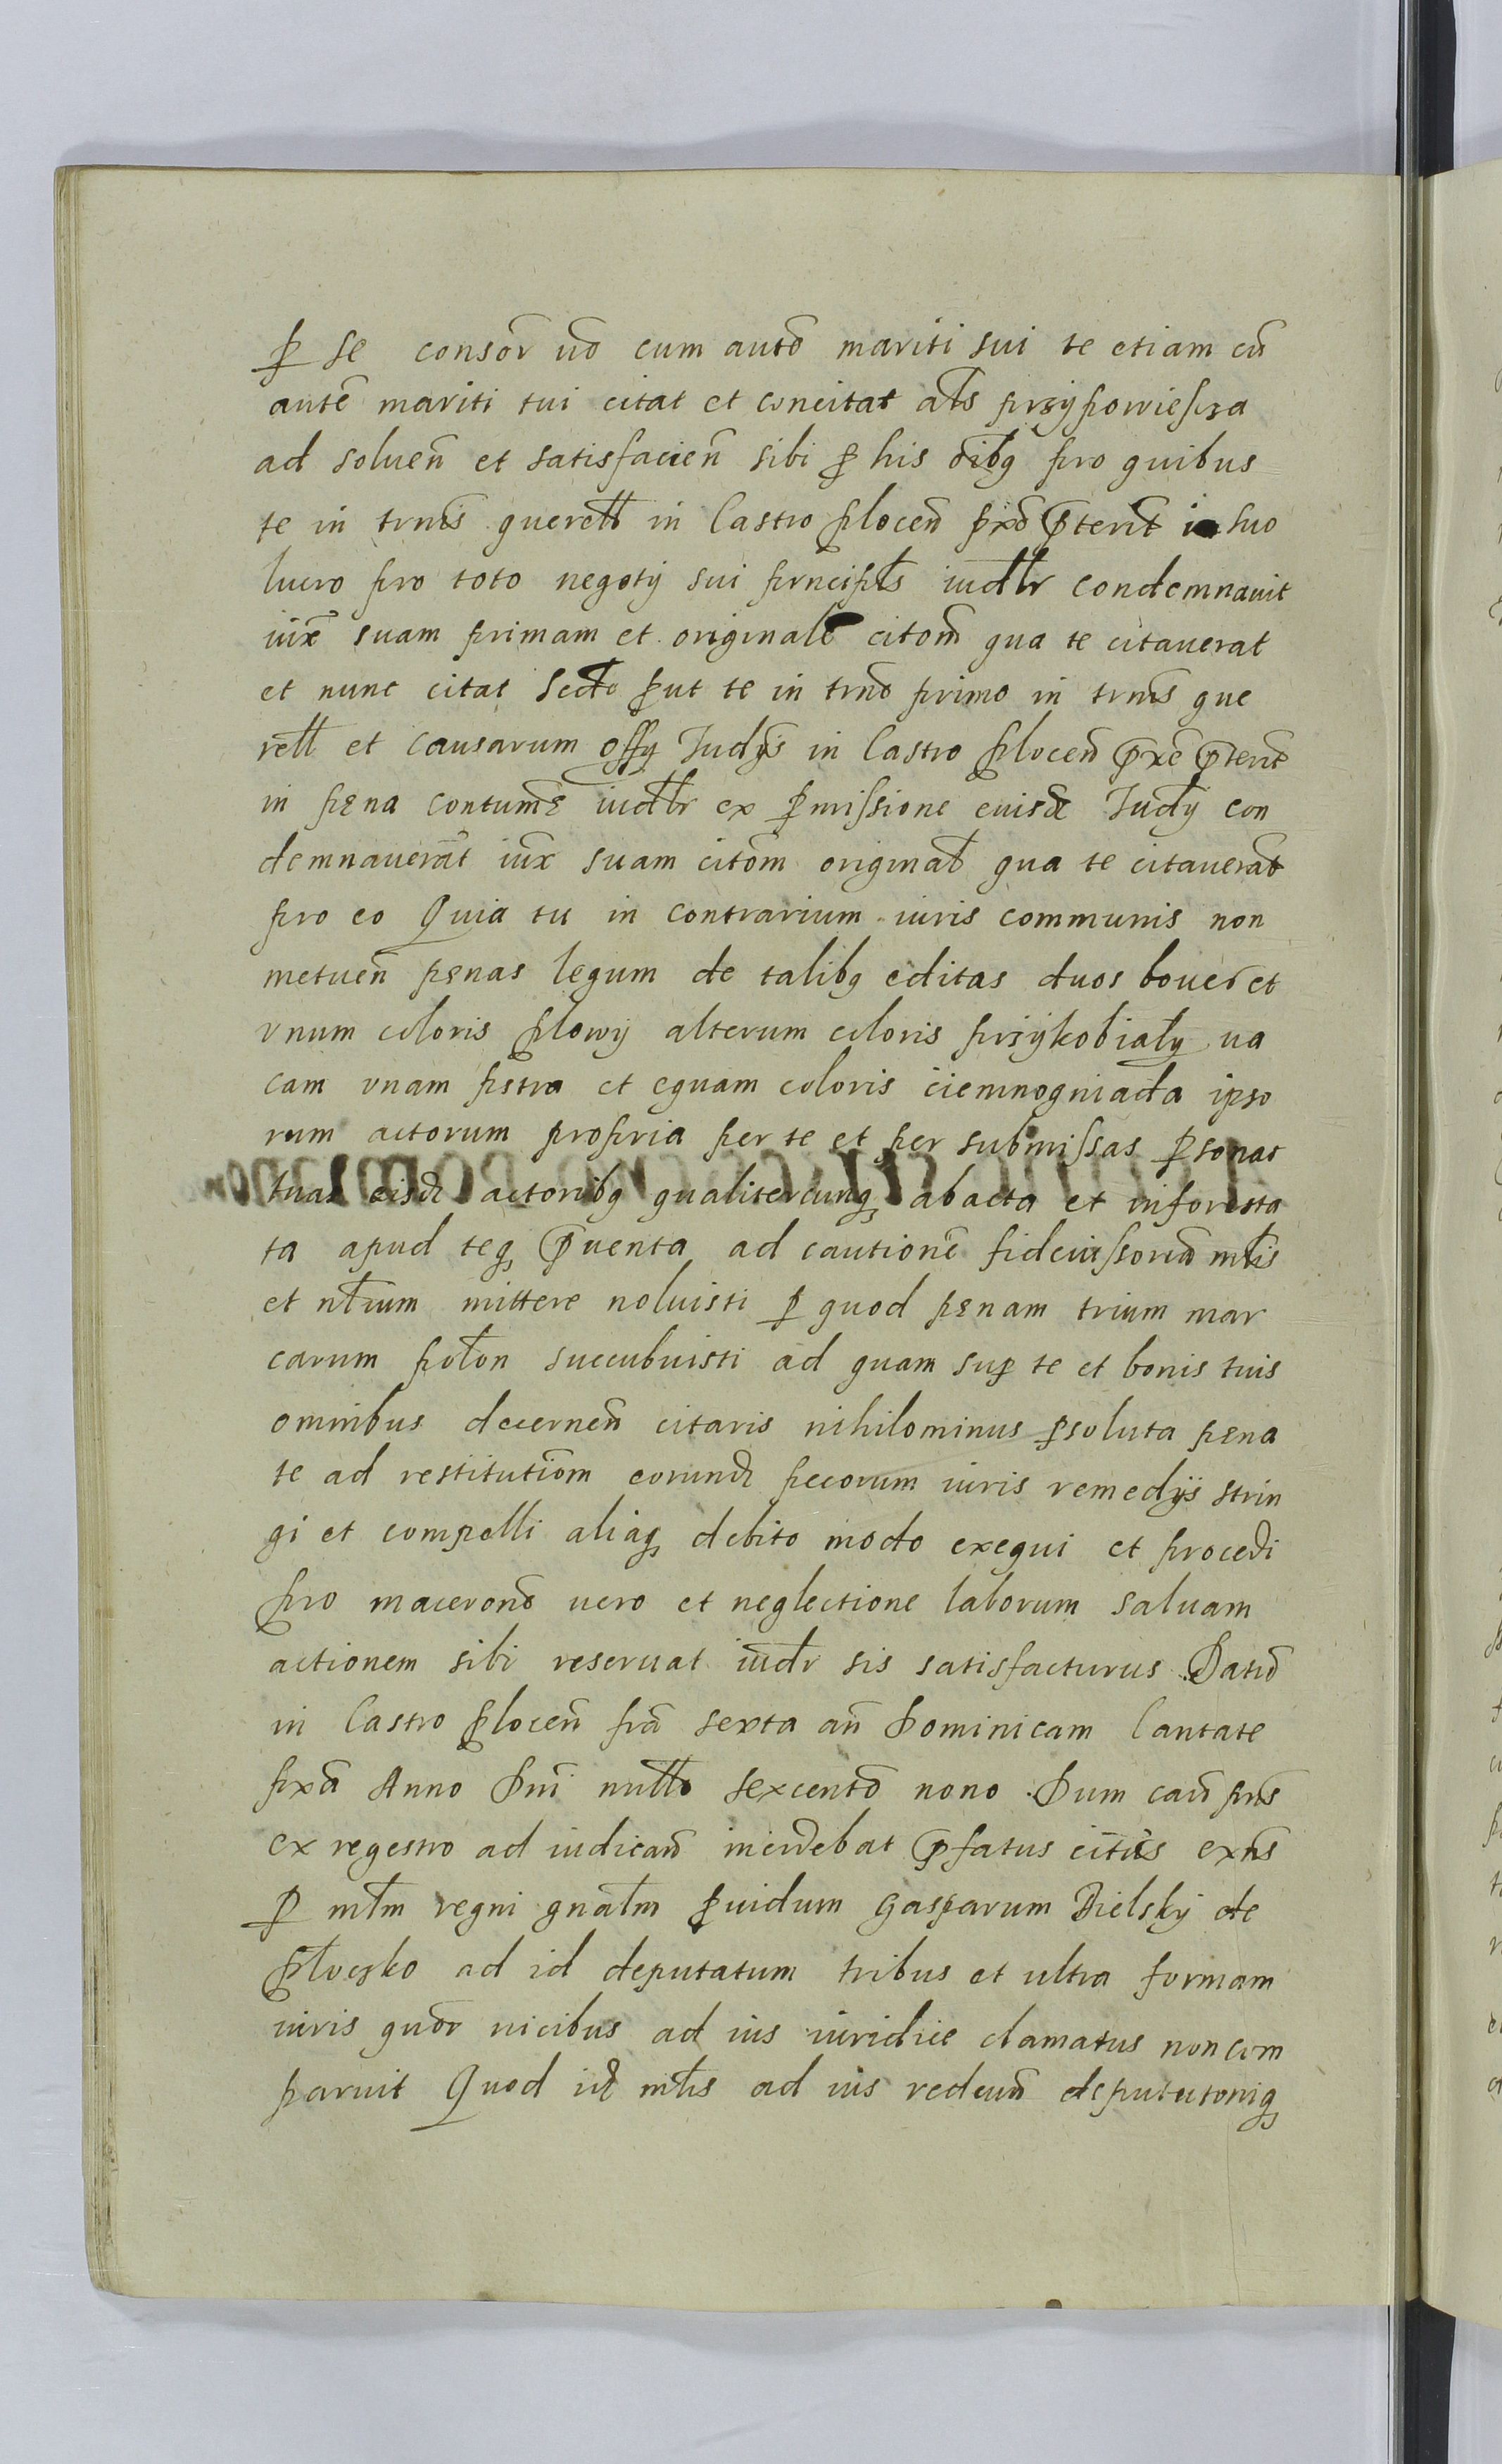 ꝑ se consōr ūo cum autō mariti sui te etiam cū
autē mariti tui citat et concitat als przypowiescza
ad soluen̄ et satisfacien̄ sibi ꝓ his oībꝫ pro quibus
te in trnīs querell in Castro Plocen̄ pxō p̄terit in suo
lucro pro toto negoty sui prncipls iudlr condemnauit
iūx suam primam et originalē citom̄ qua te citauerat
et nunc citat Secdo ꝓut te in trnō primo in trnīs que
rell et causarum offy Judys in Castro Plocen̄ p̄xē p̄terit̄
in pęna contumę iudlr ex ꝑmissione euisd Judy con
demnauerāt iūx suam citōm original qua te citauerāt
pro eo Quia tu in contrarium iuris communis non
metuen̄ pęnas legum de talibꝫ editas duos boues et
vnum coloris plowy alterum coloris przykobialy ua
cam vnam pstra et equam coloris ciemnogniada ipso
rum actorum propria per te et per submissas ꝑsonas
tuas eisd actoribꝫ qualitercunqꝫ abacta et inforesta
ta apud teqꝫ p̄uenta ad cautionē fideiussoriā mtis
et ntrium mittere noluisti ꝓ quod pęnam trium mar
carum polon succubuisti ad quam suꝑ te et bonis tuis
omnibus decernen̄ citaris nihilominus ꝑsoluta pęna
te ad restitutiōm eorund pecorum iuris remedys strin
gi et compelli aliaqꝫ debito modo exequi et procedi
pro maceronō vero et neglectione laborum saluam
actionem sibi reseruat iūdr sis satisfacturus Datū
in Castro Plocen̄ frā sexta an̄ Dominicam Cantate
pxā Anno Dni millo sexcentō nono Dum caū pns
ex regestro ad iudican̄ incidebat p̄fatus citūs exns
ꝑ mlm regni gnalm ꝓuidum Gasparum Bielsky de
Ploczko ad id deputatum tribus et ultra formam
iuris quōr uicibus ad ius iuridice clamatus non com
paruit Quod id mls ad ius redeun̄ deputatoriqꝫ